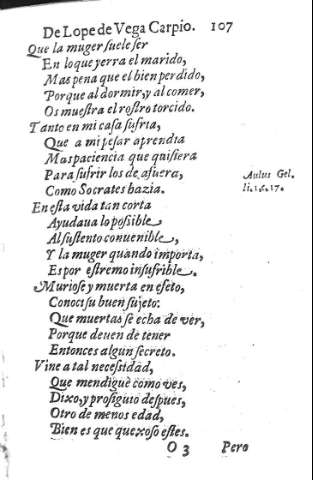 De Lope de Vega Carpio. 107
Que la muger suele ser
En lo que yerra el marido,
Mas pena que el bien perdido,
Porque al dormir, y al comer,
Os muestra el rostro torcido.
Tanto en mi casa sufria,
Que a mi pesar aprendia
Mas paciencia que quisiera
Para sufrir los de afuera,
Como Socrates hazia.
Aulus Gel.
li.1.c.17.
En esta vida tan corta
Ayudaua lo possible
Al sustento conuenible,
Y la muger quando importa,
Es por estremo insufrible.
Muriose y muerta en efeto,
Conoci su buen sujeto:
Que muertas se echa de ver,
Porque deuen de tener
Entonces algun secreto.
Vine a tal necessidad,
Que mendiguè como ves,
Dixo, y prosiguio despues,
Otro de menos edad,
Bien es que quexoso estes.
O 3 Pero